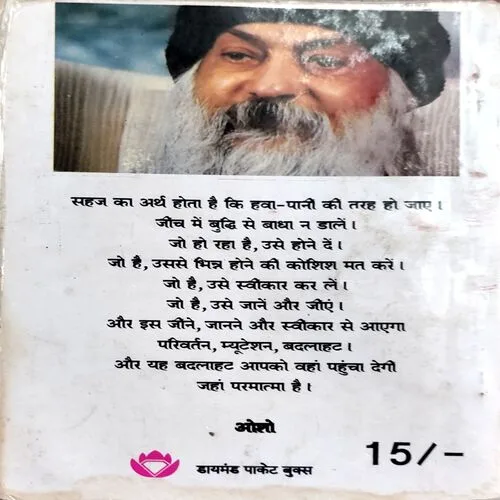 सहज का अर्थ होता है कि हवा-पानी की तरह हो जाए।
जीच में बुद्धि से बाधा न डालें।
जो हो रहा है, उसे होने दें।
जो है, उससे भिन्न होने की कोशिश मत करें।
जो है, उसे स्वीकार कर लें।
जो है, उसे जानें और जीएं।
और इस जीने, जानने और स्वीकार से आएगा
परिवर्तन, म्यूटेशन, बदलाहट।
और यह बदलाहट आपको वहां पहुंचा देगी
जहां परमात्मा है।
ओशो
डायमंड पाकेट बुक्स
15/-